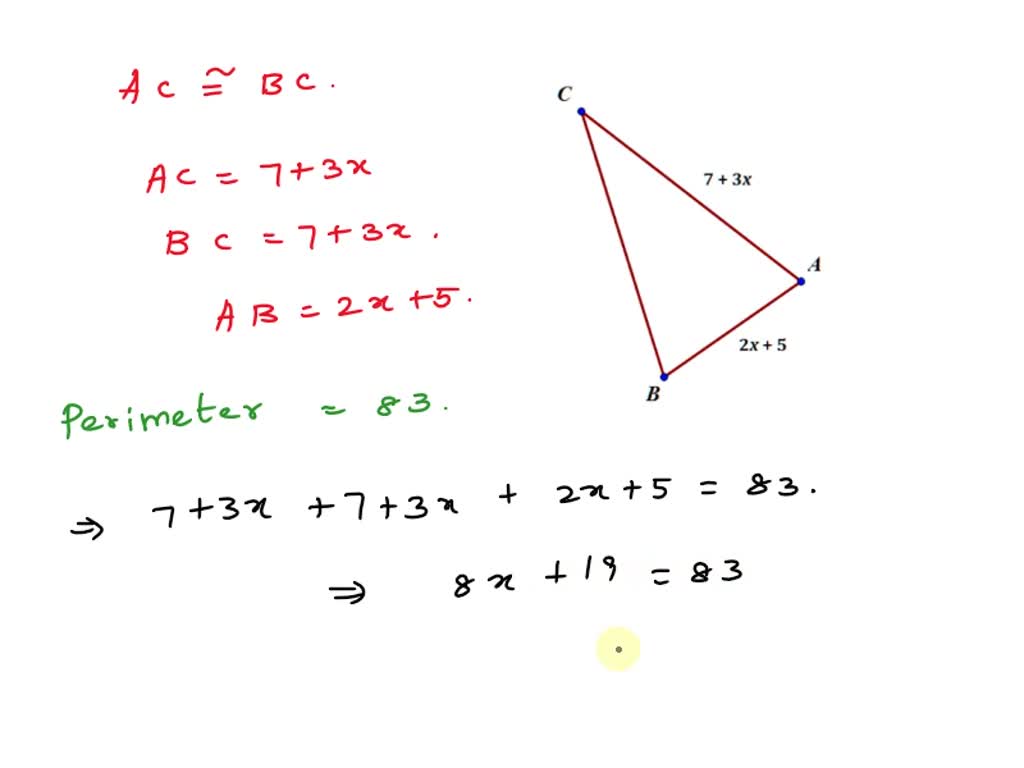 AC ≅ BC.
AC = 7+3x
BC = 7+3x.
AB = 2x+5.
Perimeter = 83.
⇒ 7+3x +7+3x + 2x+5 = 83.
⇒ 8x +19 = 83
C
7 + 3x
A
2x + 5
B